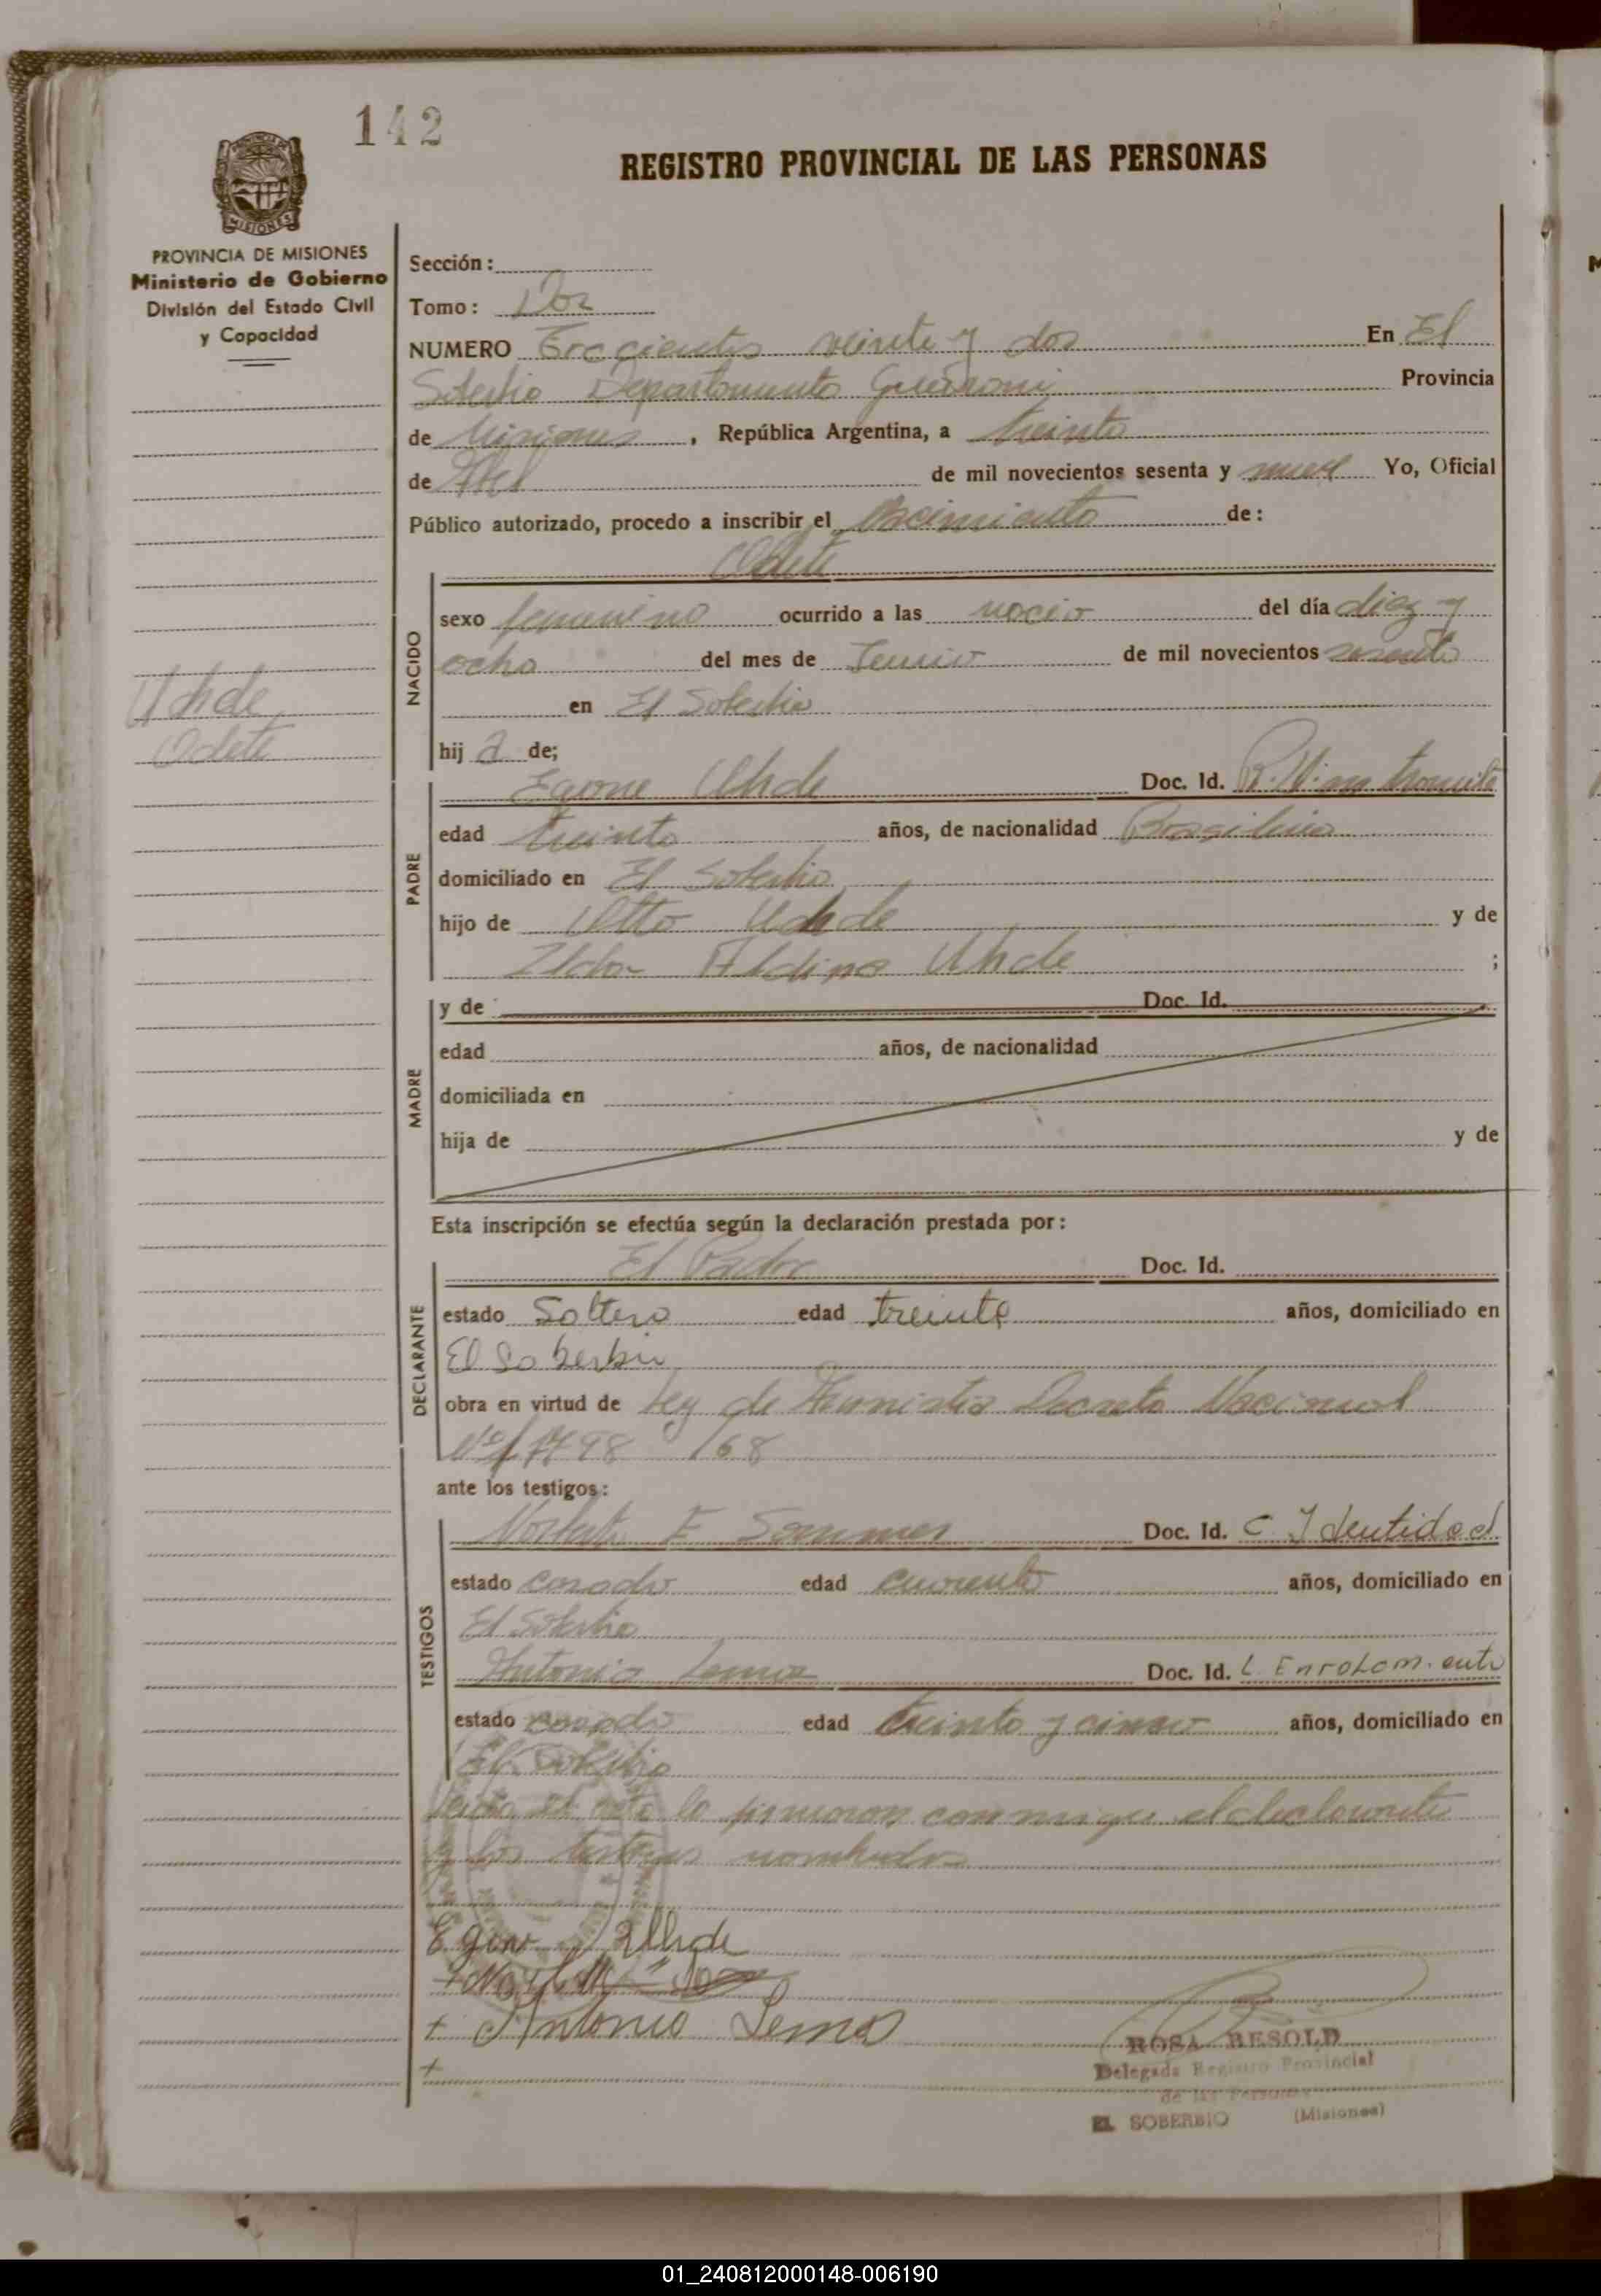 142
REGISTRO PROVINCIAL DE LAS PERSONAS
PROVINCIA DE MISIONES
MISIONES
PROVINCIA DE MISIONES
Ministerio de Gobierno
División del Estado Civil
y Capacidad
Uhde
Odete
Sección:
Tomo: Dos
NUMERO Trecientos veinte y dos En El
Soberbio Departamento Guarani Provincia
de Misiones, República Argentina, a treinta
de Abril de mil novecientos sesenta y nueve Yo, Oficial
Público autorizado, procedo a inscribir el Nacimiento de:
Odete
NACIDO
sexo femenino ocurrido a las nacio del día diez y
ocho del mes de Junio de mil novecientos sesenta
en El Soberbio
hij a de;
PADRE
Egone Uhde Doc. Id.
edad treinta años, de nacionalidad Brasilera
domiciliado en El Soberbio
hijo de Otto Uhde y de
Aldina Uhde ;
MADRE
y de Doc. Id.
edad años, de nacionalidad
domiciliada en
hija de y de
Esta inscripción se efectúa según la declaración prestada por:
DECLARANTE
El Padre Doc. Id.
estado Soltero edad treinta años, domiciliado en
El Soberbio
obra en virtud de Ley de Amnistia Decreto Nacional
Nº 17798 /68
ante los testigos:
TESTIGOS
Norberto F Sommer Doc. Id. C Identidad
estado casado edad cuarenta años, domiciliado en
El Soberbio
Antonio Lemos Doc. Id. L Enrolamiento
estado casado edad treinta y cinco años, domiciliado en
El Soberbio
Leida el acta la firmaron conmigo el declarante
y los testigos nombrados
Egon Uhde
+ Antonio Lemos
+
ROSA RESOLD
Delegada Registro Provincial
de las Personas
EL SOBERBIO (Misiones)
01_240812000148-006190